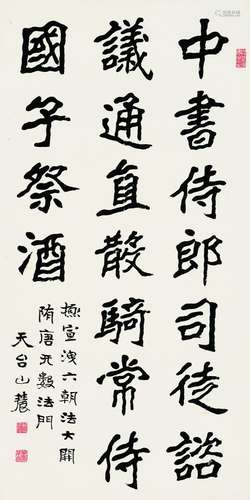 中書侍郎司徒諮
議通直散騎常侍
國子祭酒
擬宣洩六朝法大開
隋唐无數法門
天台山農